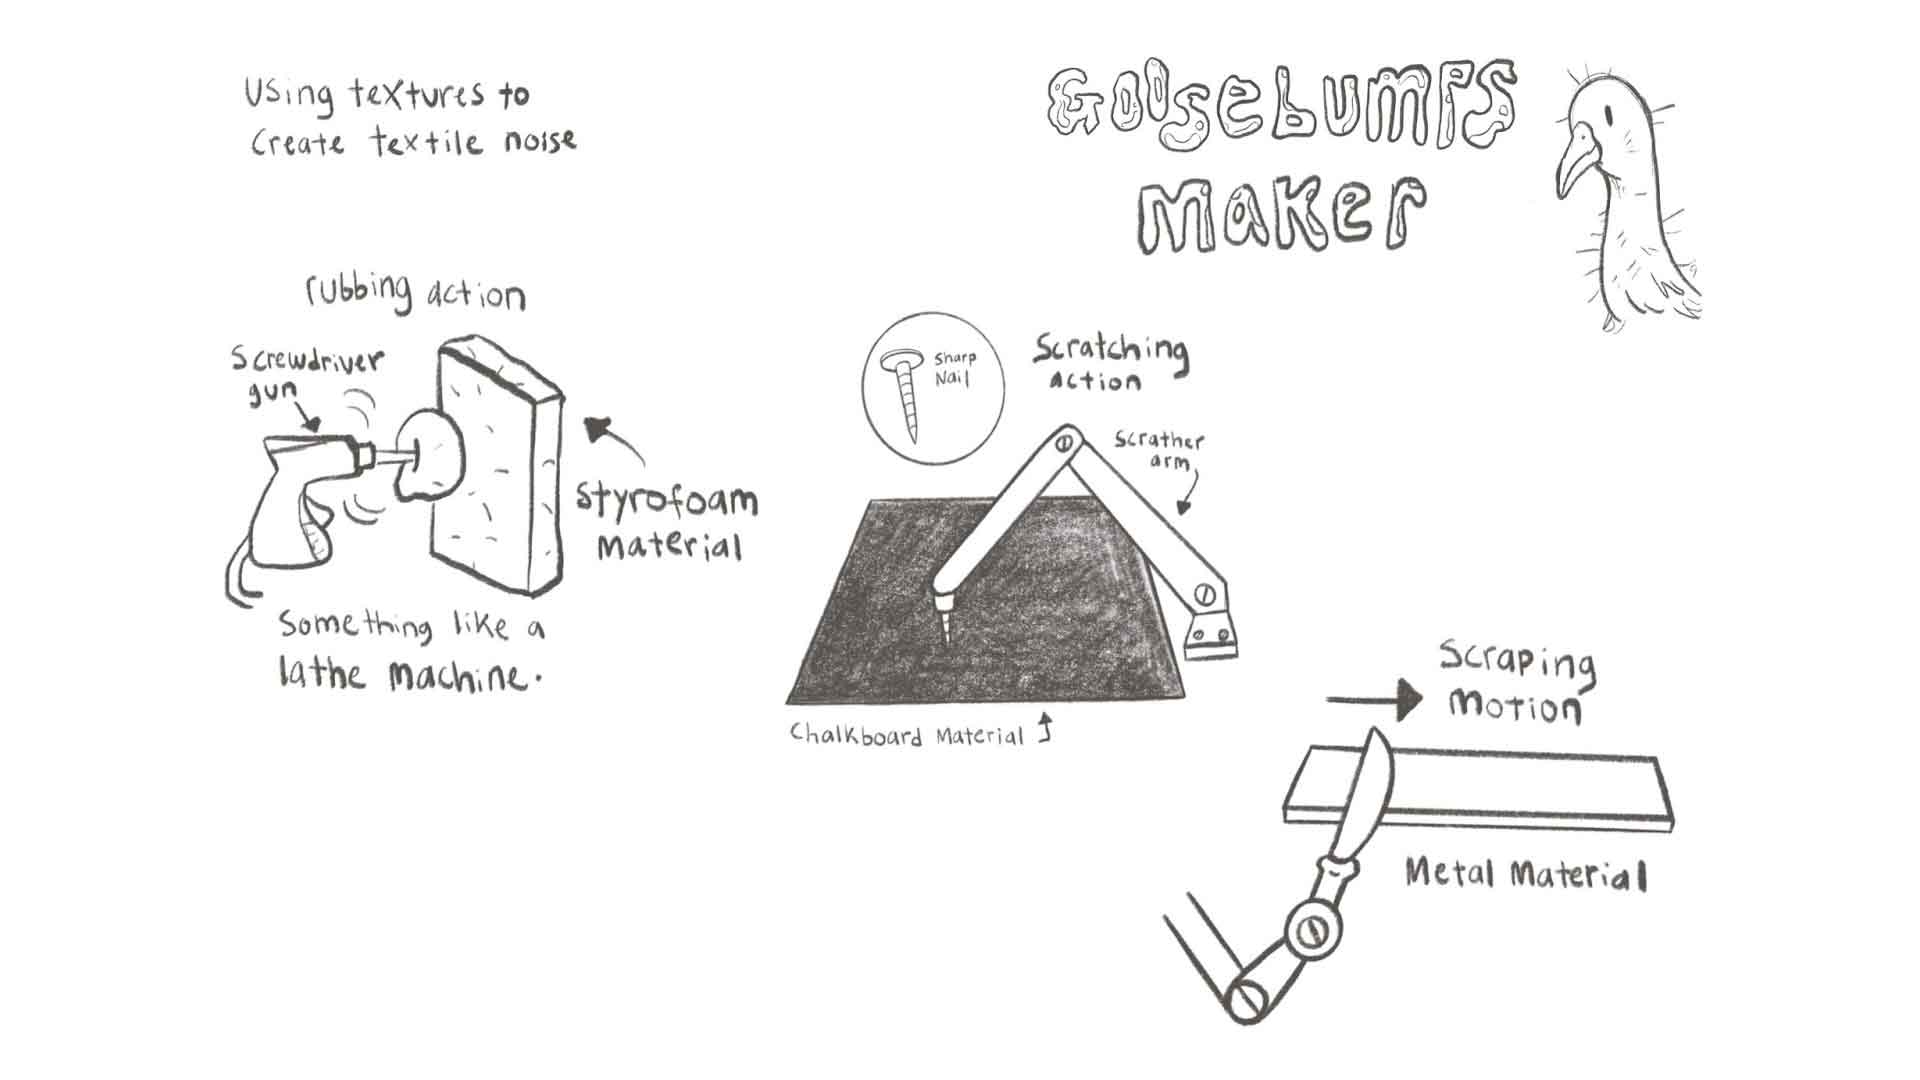 Using textures to
Create textile noise
GOOSEBUMPS
MAKER
rubbing action
Screwdriver
gun
Styrofoam
Material
Something like a
lathe machine.
Sharp
Nail
Scratching
action
Scrather
arm
Chalkboard Material
Scraping
Motion
Metal Material